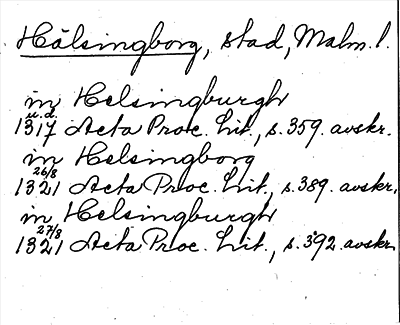 Hälsingborg, stad, Malm. l.
in Helsingburgh
u.d.
1317 Acta Proc. Lit., s. 359. avskr.
in Helsingborg
26/8
1321 Acta Proc. Lit., s. 389. avskr.
in Helsingburgh
27/8
1321 Acta Proc. Lit., s. 392. avskr.